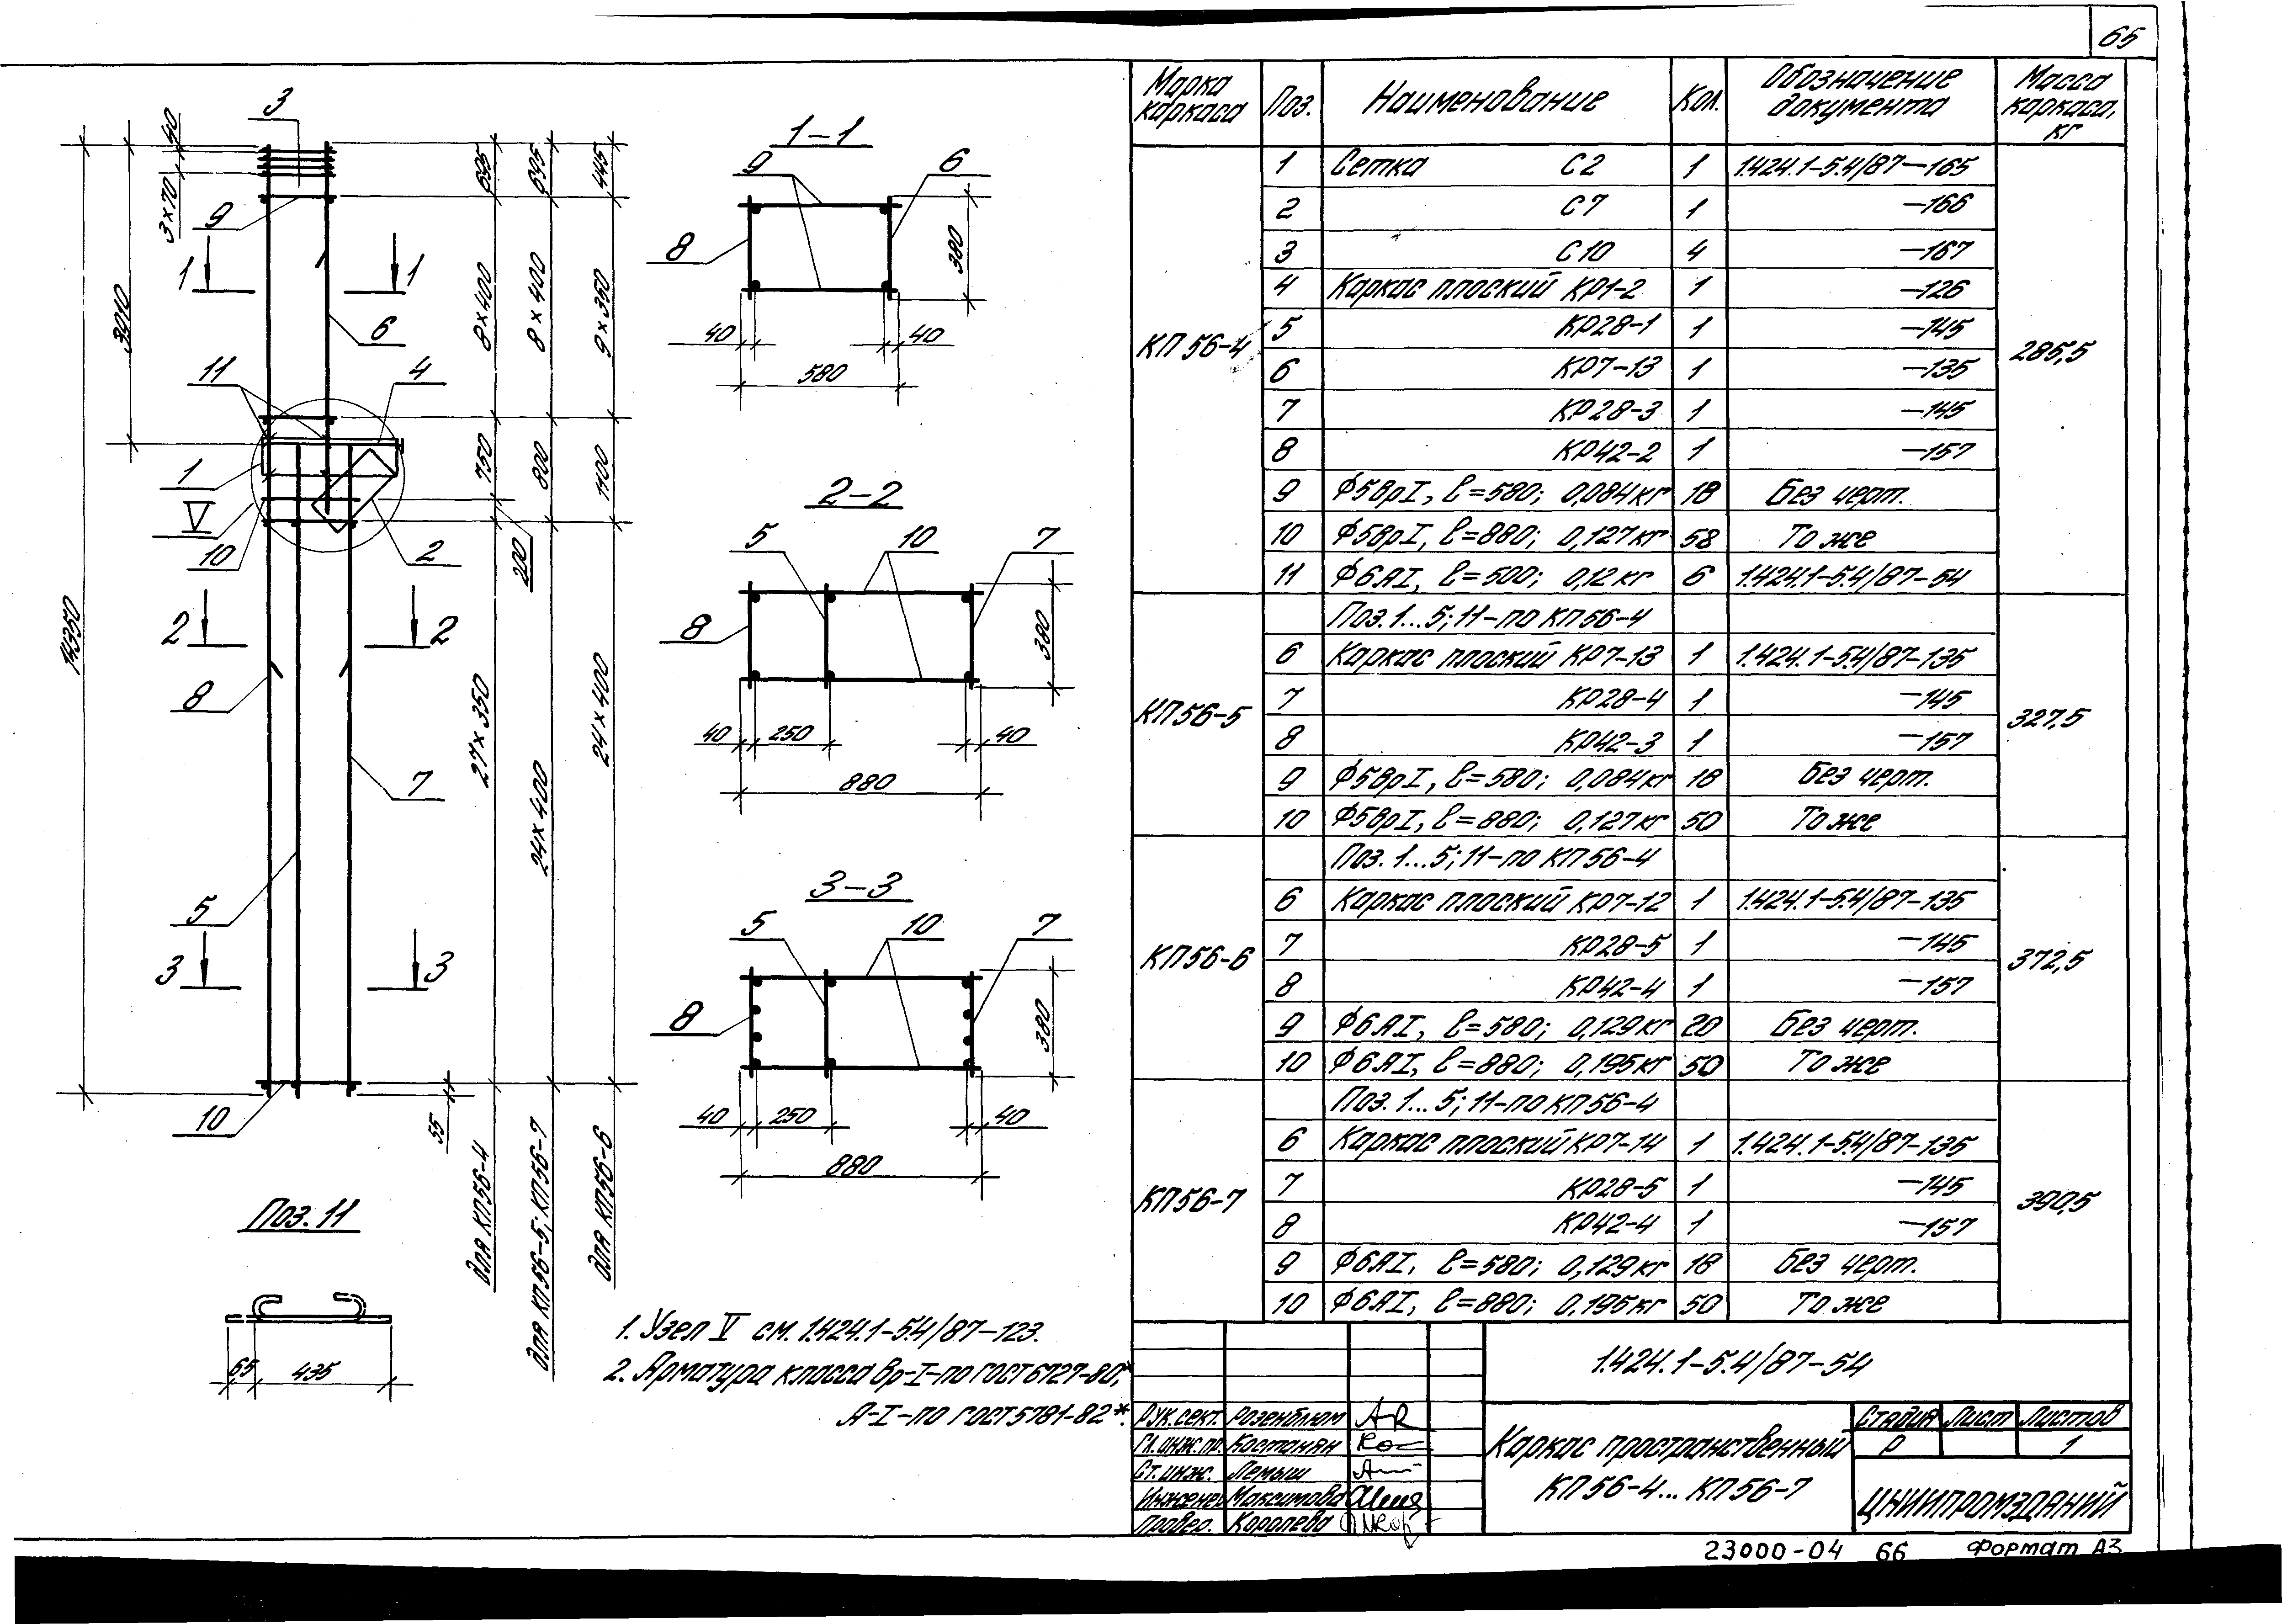 65
Марка каркаса Поз. Наименование Кол. Обозначение документа Масса каркаса, кг
КП 56-4 285,5
1 Сетка С2 1 1.424.1-5.4/87-165
2 С7 1 -166
3 С10 4 -167
4 Каркас плоский КР1-2 1 -126
5 КР28-1 1 -145
6 КР7-13 1 -135
7 КР28-3 1 -145
8 КР42-2 1 -157
9 Ф5ВрI, ℓ=580; 0,084кг 18 Без черт.
10 Ф5ВрI, ℓ=880; 0,127кг 58 То же
11 Ф6АI, ℓ=500; 0,12кг 6 1.424.1-5.4/87-54
КП56-5 327,5
Поз. 1...5; 11-по КП56-4
6 Каркас плоский КР7-13 1 1.424.1-5.4/87-135
7 КР28-4 1 -145
8 КР42-3 1 -157
9 Ф5ВрI, ℓ=580; 0,084кг 18 Без черт.
10 Ф5ВрI, ℓ=880; 0,127кг 50 То же
КП56-6 372,5
Поз. 1...5; 11-по КП56-4
6 Каркас плоский КР7-12 1 1.424.1-5.4/87-135
7 КР28-5 1 -145
8 КР42-4 1 -157
9 Ф6АI, ℓ=580; 0,129кг 20 Без черт.
10 Ф6АI, ℓ=880; 0,195кг 50 То же
КП56-7 390,5
Поз. 1...5; 11-по КП56-4
6 Каркас плоский КР7-14 1 1.424.1-5.4/87-135
7 КР28-5 1 -145
8 КР42-4 1 -157
9 Ф6АI, ℓ=580; 0,129кг 18 Без черт.
10 Ф6АI, ℓ=880; 0,195кг 50 То же
3
40
3×70
9
1 1
3910
6
11 4
1
V
10 2
14350
2 2
8
7
5
3 3
10
55
695 695 445
8×400 8×400 9×350
750 800 1400
200
27×350 24×400 24×400
для КП56-4
для КП56-5; КП56-7
для КП56-6
1-1
9 6
8 380
40 40
580
2-2
5 10 7
8 380
40 250 40
880
3-3
5 10 7
8 380
40 250 40
880
Поз. 11
65 435
1. Узел V см. 1.424.1-5.4/87-123.
2. Арматура класса Вр-I-по ГОСТ 6727-80*,
А-I-по ГОСТ 5781-82*.
1.424.1-5.4/87-54
Рук.сект. Розенблюм
Гл.инж.пр. Костанян
Ст.инж. Лемыш
Инженер Максимова
Провер. Королева
Каркас пространственный
КП56-4... КП56-7
Стадия Лист Листов
Р 1
ЦНИИПРОМЗДАНИЙ
23000-04 66 Формат А3